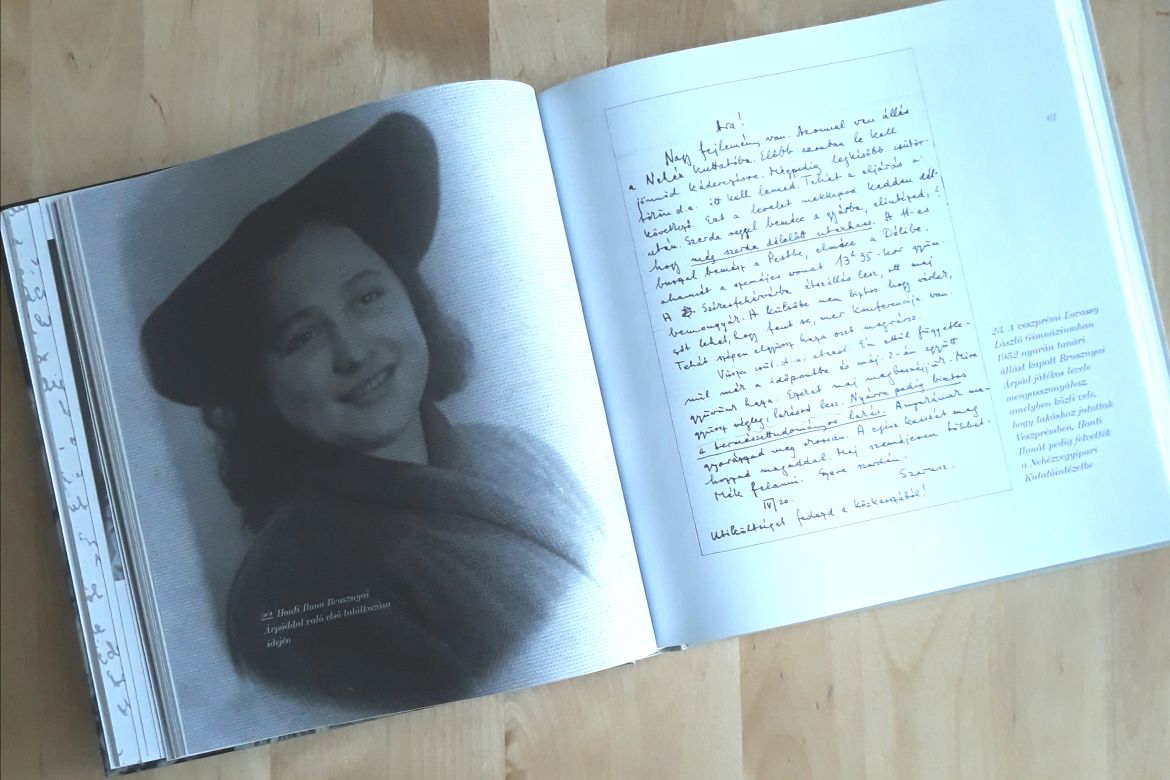 22. Honti Ilona Brusznyai
Árpáddal való első találkozása
idején
Ara!
Nagy fejlemény van. Azonnal van állás
a Nehéz kuttatóba. Előbb azonban le kell
jönnöd káderezésre. Mégpedig legkésőbb csütör-
tökön d.e. itt kell lenned. Tehát a eljárás a
következő. Ezt a levelet mekkapod kedden dél-
után. Szerda reggel bemész a gyárba, elintézed,
hogy még szerda délelőtt utazhass. A 11-es
busszal bemész a Pestbe, elmész a Délibe.
ahonnét a személyes vonat 13 35-kor gyün.
A Székesfehérvárba átszállás lesz, ott maj
bemongyák. A külsőbe nem biztos hogy várlek,
sőt lehet, hogy fent se, mer konferencija van.
Tehát szépen elgyüssz haza oszt megvársz.
Vissza csüt. d.u. utazol. Én attúl függetle-
nül már a időpontba és máj. 2.-án együtt
gyüvünk haza. Ezeket maj megbeszéjjük. Mire
gyüssz végleg, lakásod lesz. Nyárra pedig biztos
a természettudományos lakás. Anyukának ma-
gyarázzad meg okossan. A egész kasszát mag
hozzad magaddal. Maj személyesen többet.
Mék felanni. Gyere szerdán.
Szamusz.
IV/20.
Utiköltséget fedezd a közkasszából!
23. A veszprémi Lovassy
László Gimnáziumban
1952 nyarán tanári
állást kapott Brusznyai
Árpád játékos levele
menyasszonyához,
amelyben közli vele,
hogy lakáshoz jutottak
Veszprémben, Honti
Ilonát pedig felvették
a Nehézvegyipari
Kutatóintézetbe